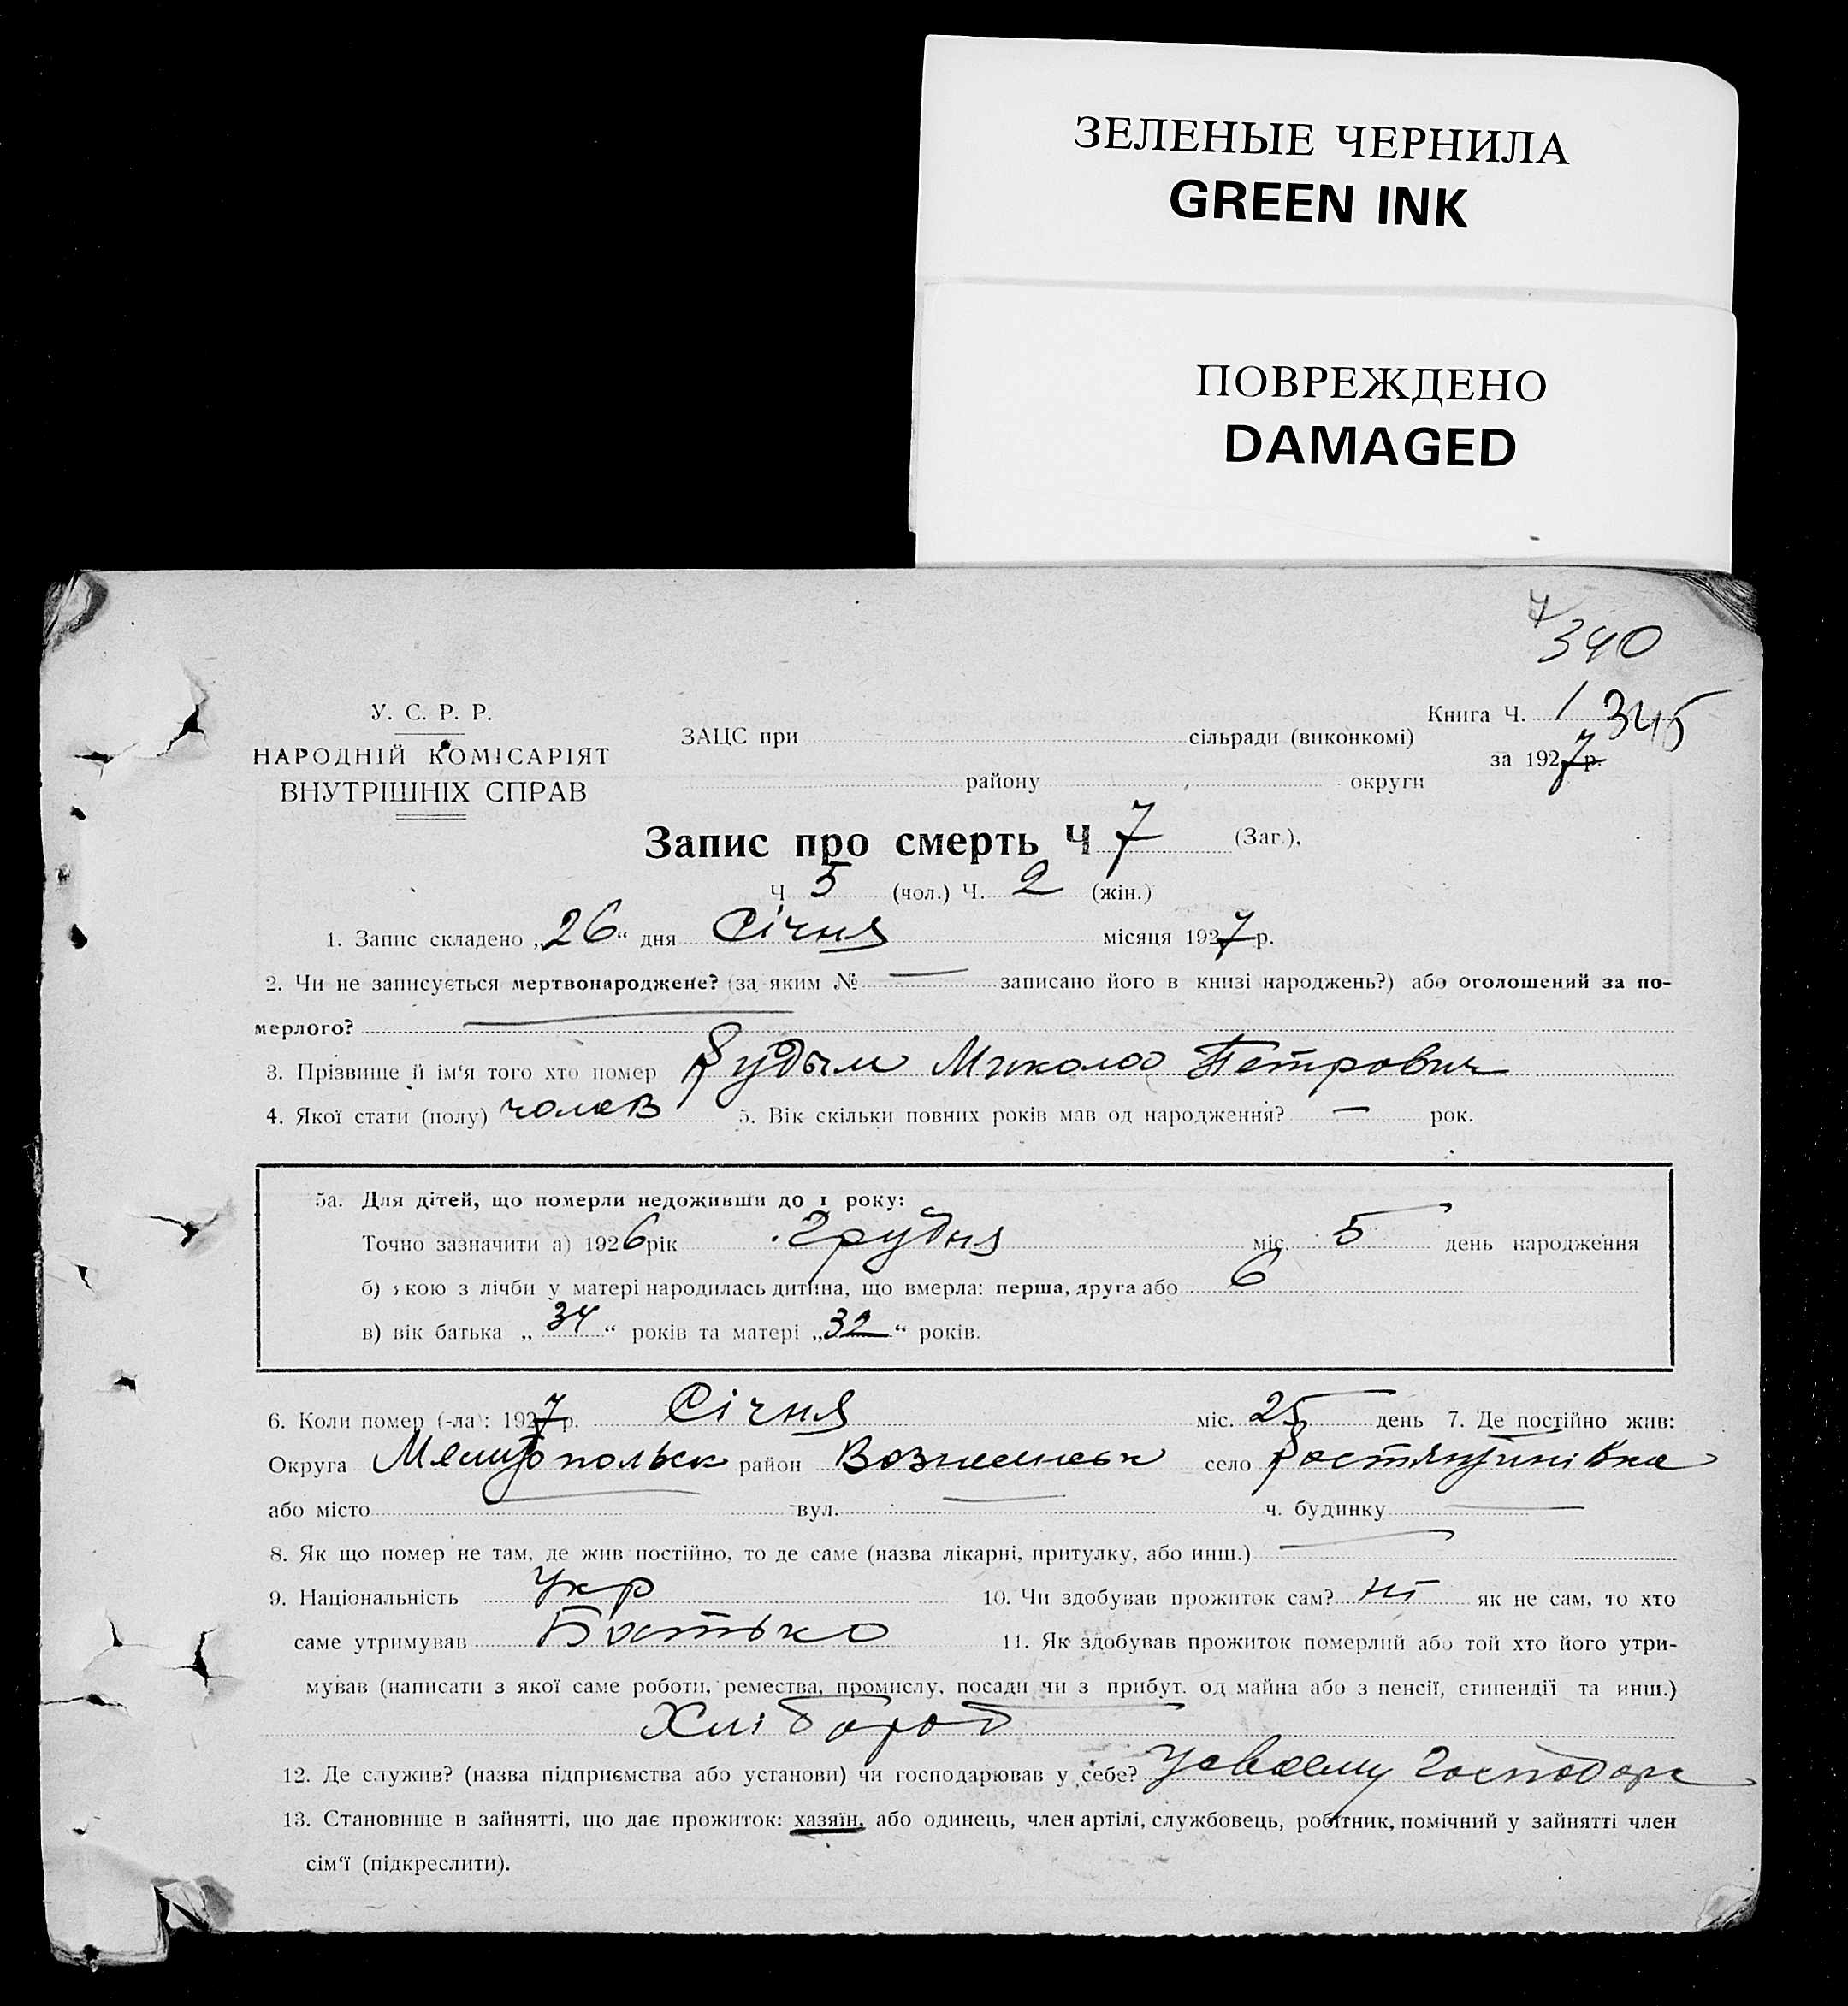 ЗЕЛЕНЫЕ ЧЕРНИЛА
GREEN INK
ПОВРЕЖДЕНО
DAMAGED
7/340
У. С. Р. Р.
НАРОДНІЙ КОМІСАРІЯТ
ВНУТРІШНІХ СПРАВ
Книга Ч. 1 345
за 1927 р.
ЗАЦС при сільради (виконкомі)
району округи
Запис про смерть Ч 7 (Заг.).
Ч 5 (чол.) Ч. 2 (жін.)
1. Запис складено „26“ дня Січня місяця 1927 р.
2. Чи не записується мертвонароджене? (за яким № — записано його в книзі народжень?) або оголошений за по-
мерлого? —
3. Прізвище й ім‘я того хто помер Микола Петрович
4. Якої стати (полу) чолов 5. Вік скільки повних років мав од народження? — рок.
5а. Для дітей, що померли недоживши до 1 року:
Точно зазначити а) 1926 рік Грудня міс. 5 день народження
б) якою з лічби у матері народилась дитина, що вмерла: перша, друга або 6
в) вік батька „34“ років та матері „32“ років.
6. Коли помер (-ла): 1927 р. Січня міс. 25 день 7. Де постійно жив:
Округа район село
або місто — вул. — ч. будинку —
8. Як що помер не там, де жив постійно, то де саме (назва лікарні, притулку, або инш.) —
9. Національність Укр 10. Чи здобував прожиток сам? ні як не сам, то хто
саме утримував Батько 11. Як здобував прожиток померлий або той хто його утри-
мував (написати з якої саме роботи, ремества, промислу, посади чи з прибут. од майна або з пенсії, стипендії та инш.)
Хлібороб
12. Де служив? (назва підприємства або установи) чи господарював у себе? У своєму господарс
13. Становище в зайнятті, що дає прожиток: хазяїн, або одинець, член артілі, службовець, робітник, помічний у зайнятті член
сім‘ї (підкреслити).